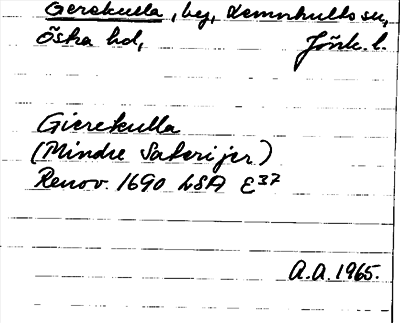 Gerekulla, by, Lemnhults sn,
Östra hd, Jönk. l.
Gierekulla
(Mindre Säterijer)
Renov. 1690 LSA E37
A.A. 1965.